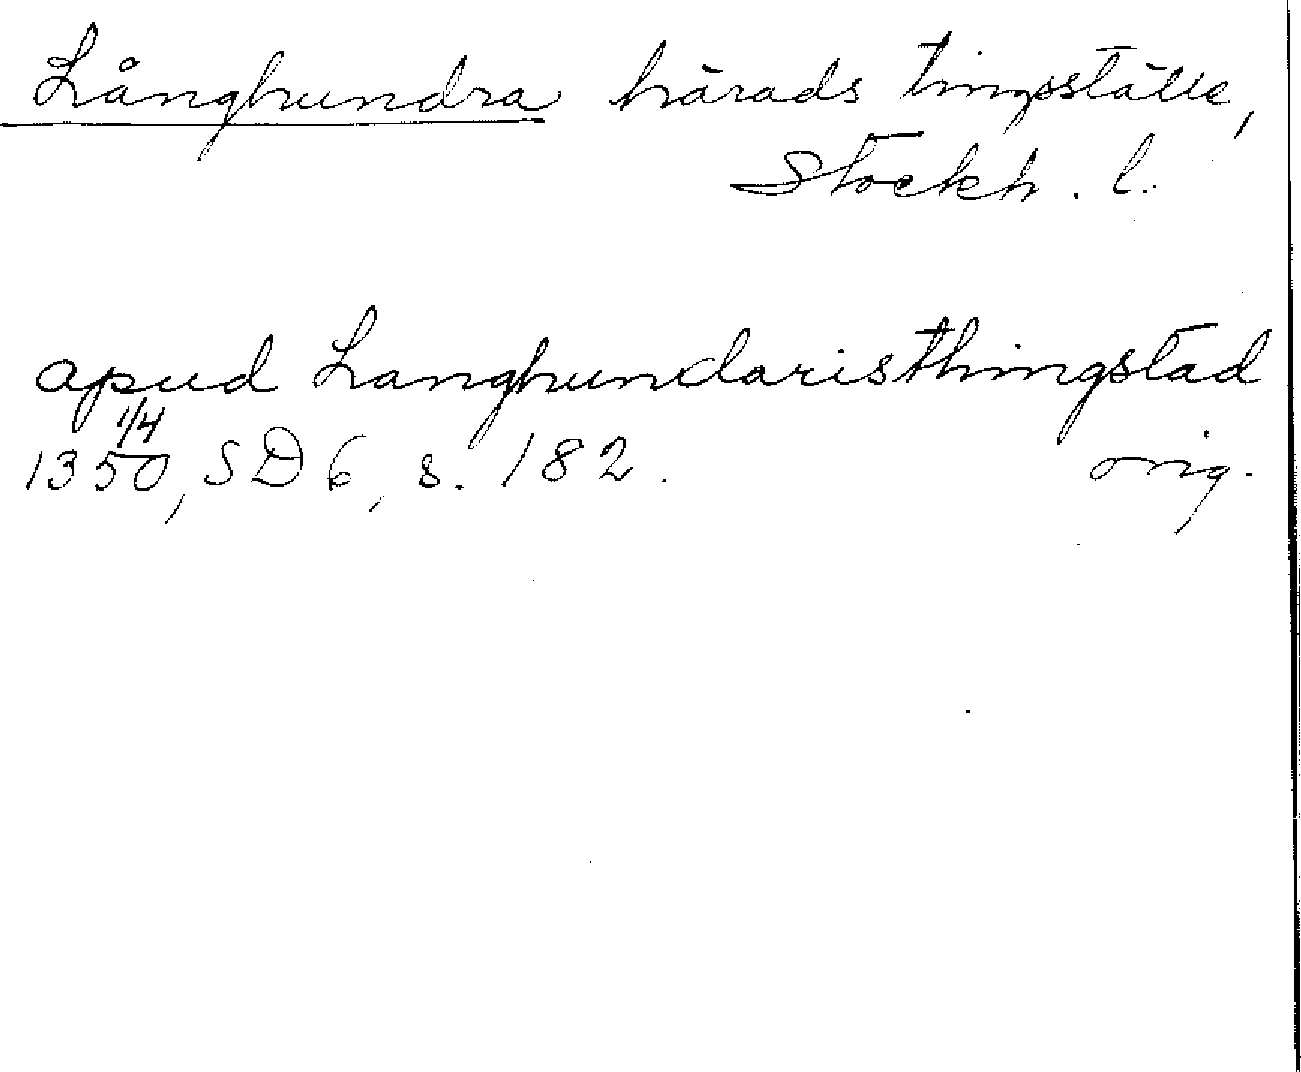 Långhundra härads tingsställe,
Stockh. l.
apud Langhundaristhingstad
1/4
1350, SD 6, s. 182. orig.